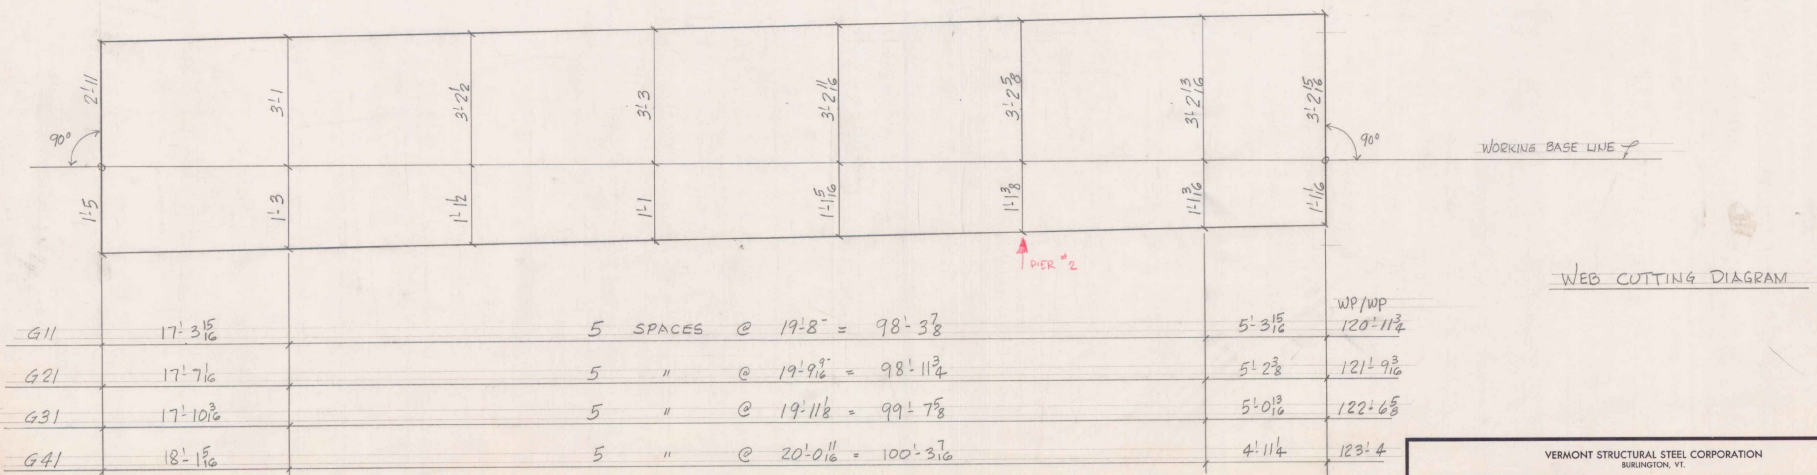 2'-11
3'-1
3'-2 1/2
3'-3
3'-2 11/16
3'-2 5/8
3'-2 13/16
3'-2 15/16
90°
90°
WORKING BASE LINE
1'-5
1'-3
1'-1 1/2
1'-1
1'-1 5/16
1'-1 3/8
1'-1 3/16
1'-1 1/16
PIER #2
WEB CUTTING DIAGRAM
WP/WP
G11 17'-3 15/16 5 SPACES @ 19'-8⁻ = 98'-3 7/8 5'-3 15/16 120'-11 3/4
G21 17'-7 1/16 5 " @ 19'-9 9/16⁻ = 98'-11 3/4 5'-2 3/8 121'-9 3/16
G31 17'-10 3/16 5 " @ 19'-11 1/8 = 99'-7 5/8 5'-0 13/16 122'-6 5/8
G41 18'-1 5/16 5 " @ 20'-0 11/16 = 100'-3 7/16 4'-11 1/4 123'-4
VERMONT STRUCTURAL STEEL CORPORATION
BURLINGTON, VT.